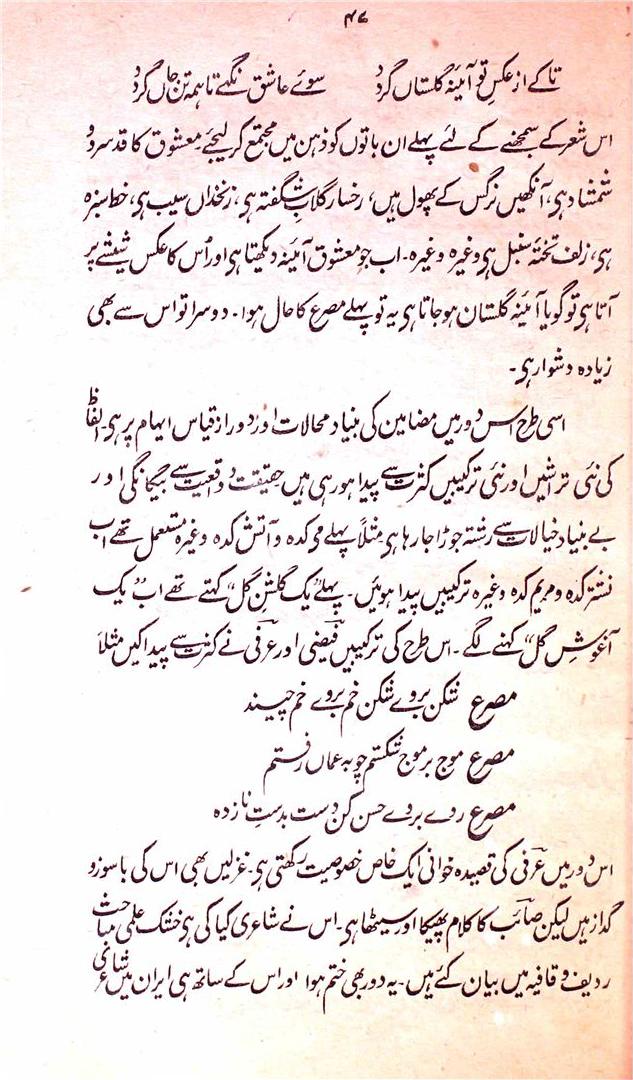 ۴۷
تا کے از عکسِ تو آئینہ گلستاں گردد سوئے عاشق نگہے تا ہمہ تن جاں گردد
اس شعر کے سمجھنے کے لئے پہلے ان باتوں کو ذہن میں مجتمع کر لیجئے معشوق کا قد سرو و
شمشاد ہی، آنکھیں نرگس کے پھول ہیں، رخسار گلاب شگفتہ ہی، زنخداں سیب ہی، خط سبزہ
ہی، زلف تختۂ سنبل ہی وغیرہ وغیرہ۔ اب جو معشوق آئینہ دیکھتا ہی اور اُس کا عکس شیشے پر
آتا ہی تو گویا آئینہ گلستان ہو جاتا ہی یہ تو پہلے مصرع کا حال ہوا۔ دوسرا تو اس سے بھی
زیادہ دشوار ہی۔
اسی طرح اس دور میں مضامین کی بنیاد محالات اور دور از قیاس ایہام پر ہی۔ الفاظ
کی نئی تراشیں اور نئی ترکیبیں کثرت سے پیدا ہو رہی ہیں حقیقت و واقعیت سے بیگانگی اور
بے بنیاد خیالات سے رشتہ جوڑا جا رہا ہی مثلاً پہلے میکدہ و آتش کدہ وغیرہ مستعمل تھے اب
نشتر کدہ و مریم کدہ وغیرہ ترکیبیں پیدا ہوئیں۔ پہلے "یک گلشنِ گل" کہتے تھے اب "یک
آغوشِ گل" کہنے لگے۔ اس طرح کی ترکیبیں فیضی اور عرفی نے کثرت سے پیدا کیں مثلاً
مصرع شکن بروے شکن خم بروے خم چیند
مصرع موج بر موج شکستم چو بہ عماں رفتم
مصرع روے بر روے حسن کن دست بدستِ ناز دہ
اس دور میں عرفی کی قصیدہ خوانی ایک خاص خصوصیت رکھتی ہی۔ غزلیں بھی اس کی با سوز و
گداز ہیں لیکن صائب کا کلام پھیکا اور سیٹھا ہی۔ اس نے شاعری کیا کی ہی خشک علمی مباحث
ردیف و قافیہ میں بیان کئے ہیں۔ یہ دور بھی ختم ہوا اور اس کے ساتھ ہی ایران میں شاعری